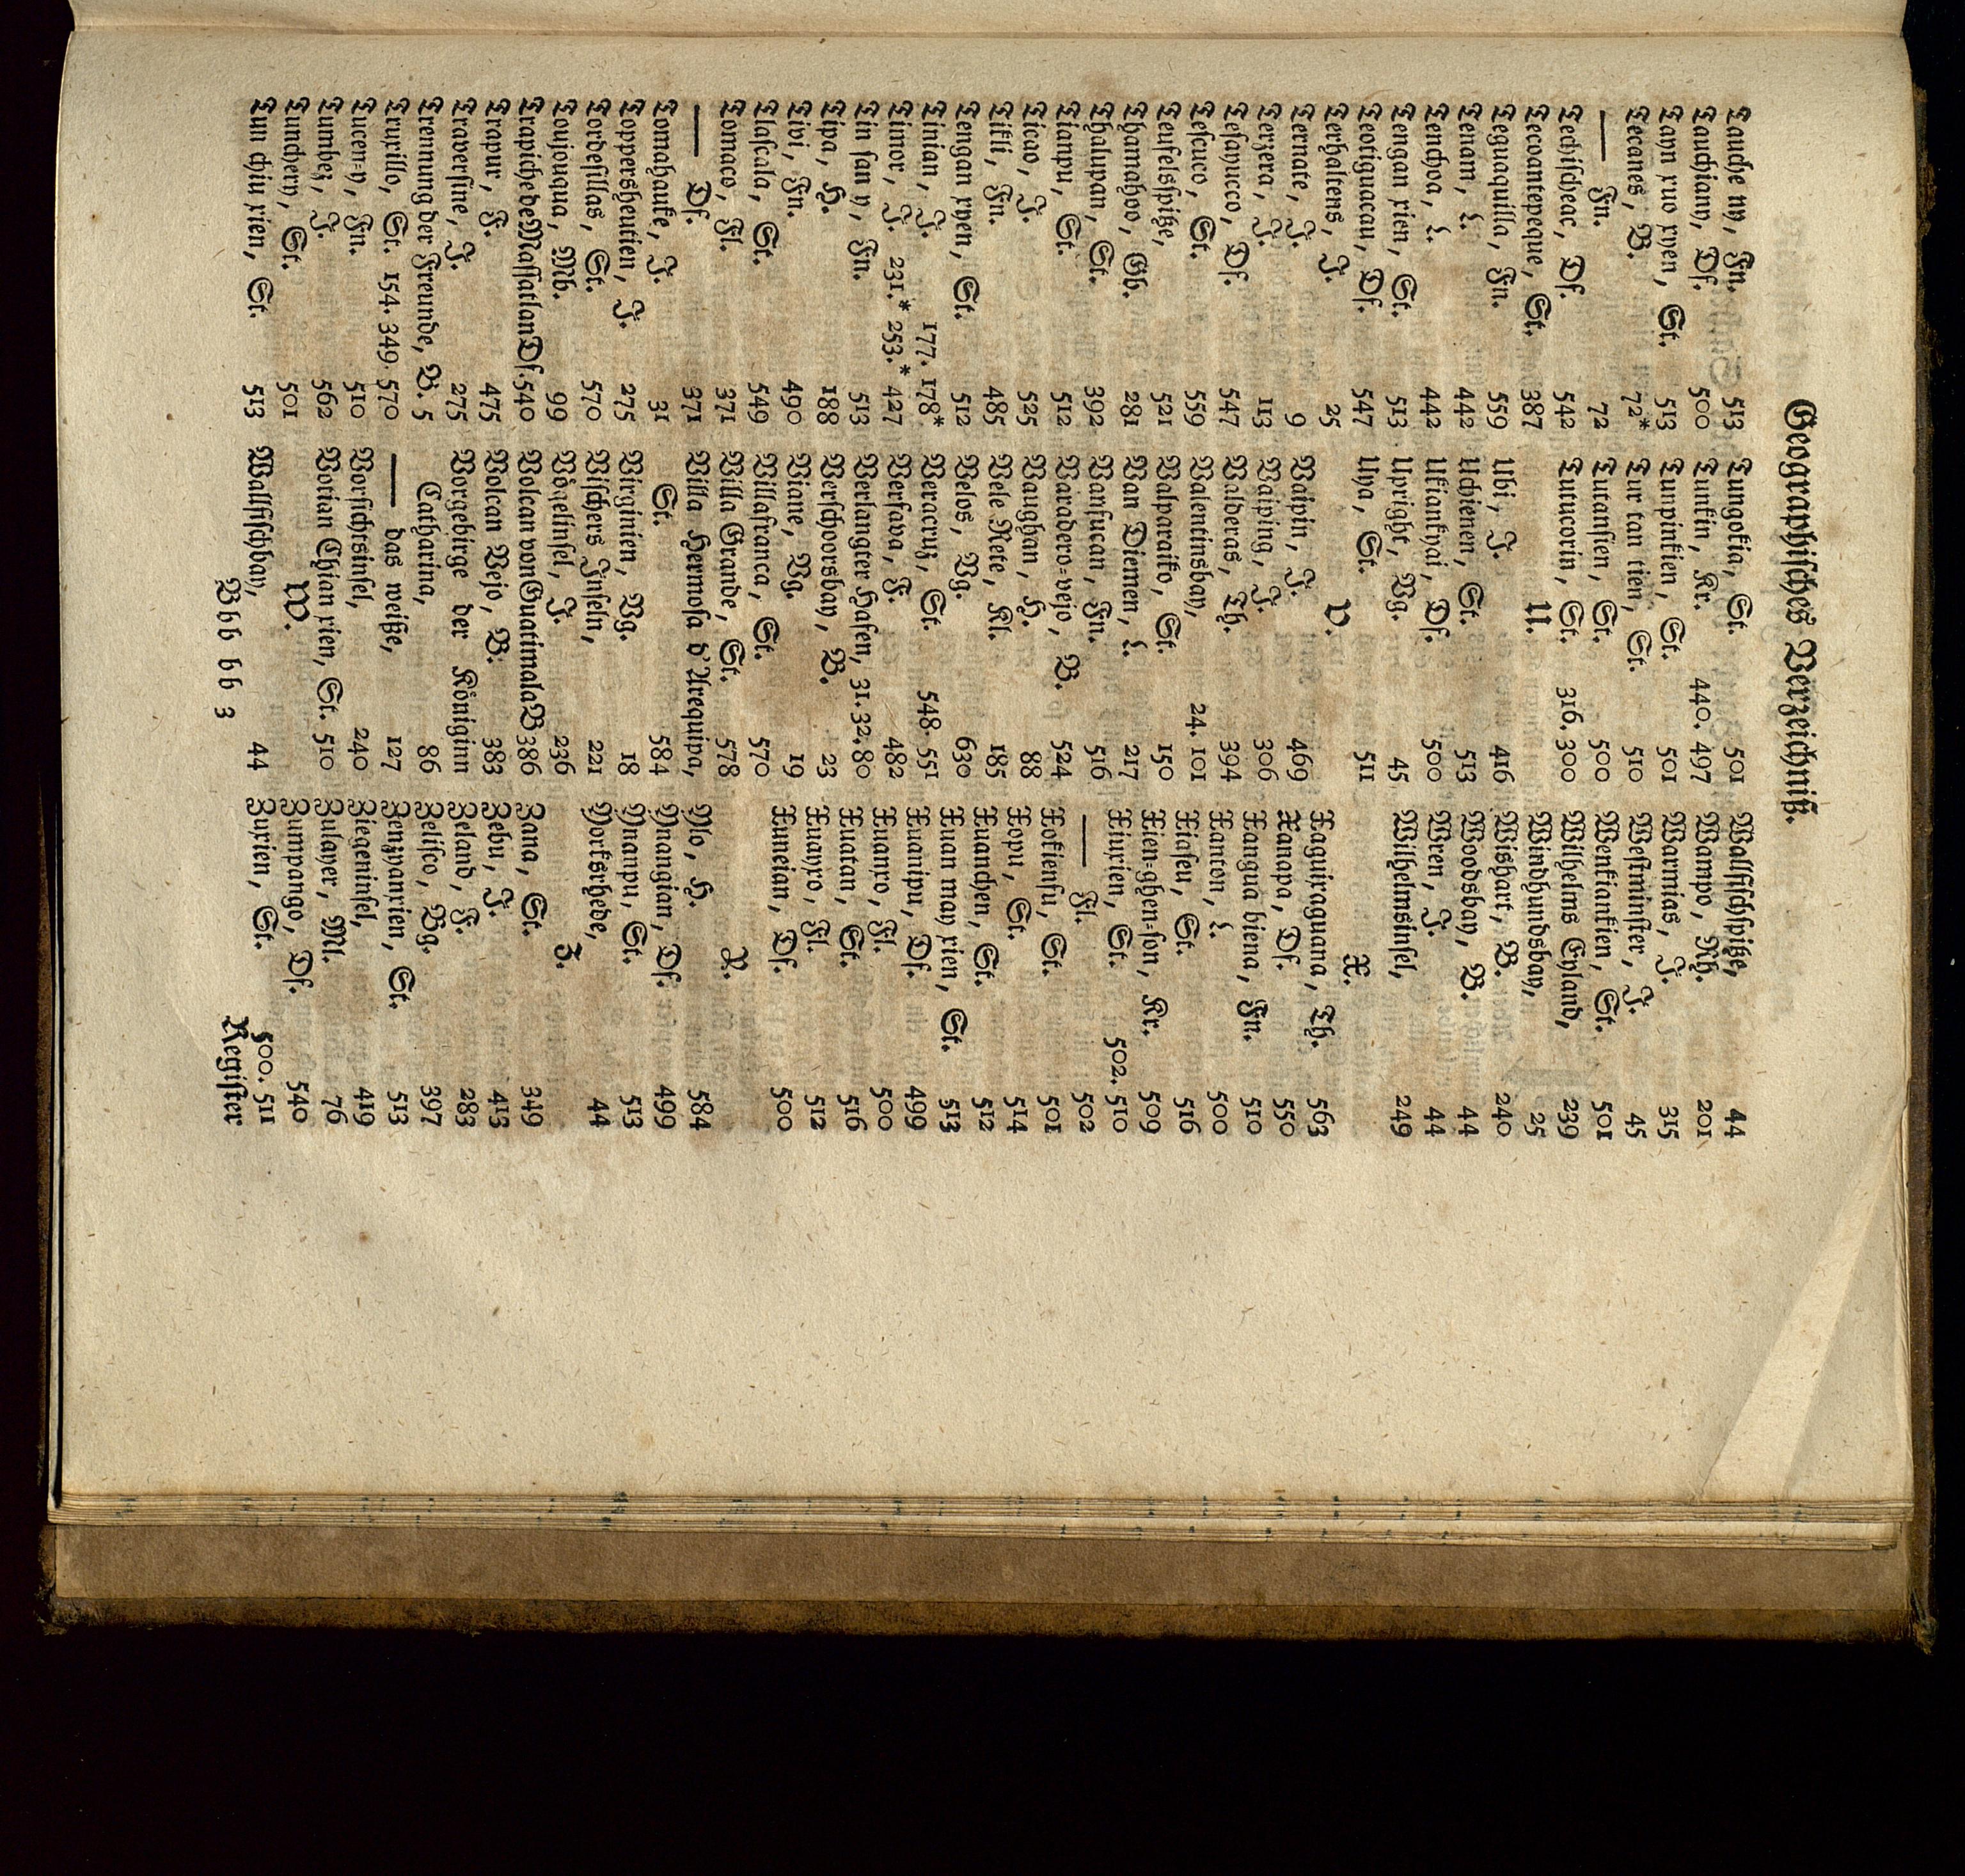 Geographisches Verzeichniß.
Tauche ny, Fn. 513
Tauchiany, Df. 500
Tayn xuo xyen, St. 513
Tecanes, B. 72*
—— Fn. 72
Techischeac, Df. 542
Tecoantepeque, St. 387
Teguaquilla, Fn. 559
Temam, L. 442
Tenchoa, L. 442
Tengan xien, St. 513
Teotiguacan, Df. 547
Terhaltens, J. 25
Ternate, J. 9
Terzera, J. 113
Tesayucco, Df. 547
Tescuco, St. 559
Teufelsspitze, 521
Thamahoo, Gb. 281
Thalupan, St. 392
Tianpu, St. 512
Ticao, J. 525
Tikli, Fn. 485
Tengan xyen, St. 512
Tinian, J. 177. 178*
Timor, J. 231.* 253.* 427
Tin san y, Fn. 513
Tipa, H. 188
Tivi, Fn. 490
Tlascala, St. 549
Tomaco, Fl. 371
—— Df. 371
Tomahauke, J. 31
Toppersheutien, J. 275
Tordesillas, St. 570
Toujouqua, Mb. 99
Trapiche de Massatlan Df. 540
Trapur, F. 475
Traversine, J. 275
Trennung der Freunde, B. 5
Truxillo, St. 154. 349. 570
Tucen-y, Fn. 510
Tumbez, J. 562
Tunchery, St. 501
Tun chiu xien, St. 513
Tungokia, St. 501
Tunkin, Kr. 440. 497
Tunpinkien, St. 501
Tur tan tien, St. 510
Tutansien, St. 500
Tutucorin, St. 316. 300
U.
Ubi, J. 416
Uchienen, St. 513
Ukiankyai, Df. 500
Upright, Vg. 45
Uya, St. 511
V.
Vaipin, J. 469
Vaiping, J. 306
Valderas, Th. 394
Valentinsbay, 24. 101
Valparaiko, St. 150
Van Diemen, L. 217
Vansucan, Fn. 516
Varadero-vejo, B. 524
Vaughan, H. 88
Vele Rete, Kl. 185
Velos, Vg. 630
Veracruz, St. 548. 551
Versava, F. 482
Verlangter Hafen, 31. 32. 80
Verschoorsbay, B. 23
Viane, Vg. 19
Villafranca, St. 570
Villa Grande, St. 578
Villa Hermosa d'Arequipa,
St. 584
Virginien, Vg. 18
Vischers Inseln, 221
Vögelinsel, J. 236
Volcan von Guatimala B 386
Volcan Vejo, B. 383
Vorgebirge der Königinn
Catharina, 86
—— das weiße, 127
Vorsichtsinsel, 240
Votian Chian xien, St. 510
W.
Wallfischbay, 44
Wallfischspitze, 44
Wampo, Rh. 201
Warmias, J. 315
Westminster, J. 45
Wenkiankien, St. 501
Wilhelms Eyland, 239
Windhundsbay, 25
Wishart, B. 240
Woodsbay, B. 44
Wren, J. 44
Wilhelmsinsel, 249
X.
Xaguiraguana, Th. 563
Xanapa, Df. 550
Xangua hiena, Fn. 510
Xanton, L. 500
Xiafeu, St. 516
Xien-ghen-son, Kr. 509
Xiuxien, St. 502. 510
—— Fl. 502
Xokiensu, St. 501
Xopu, St. 514
Xuanchen, St. 512
Xuan may xien, St. 513
Xuanipu, Df. 499
Xuanxo, Fl. 500
Xuatan, St. 516
Xuayxo, Fl. 512
Xuneian, Df. 500
Y.
Ylo, H. 584
Ynangian, Df. 499
Ynanpu, St. 513
Yorksrhede, 44
Z.
Zana, St. 349
Zebu, J. 413
Zeland, F. 283
Zelisco, Bg. 397
Zenzyanxien, St. 513
Ziegeninsel, 419
Zulayer, Ml. 76
Zumpango, Df. 540
Zuxien, St. 500. 511
Bbb bb 3 Register